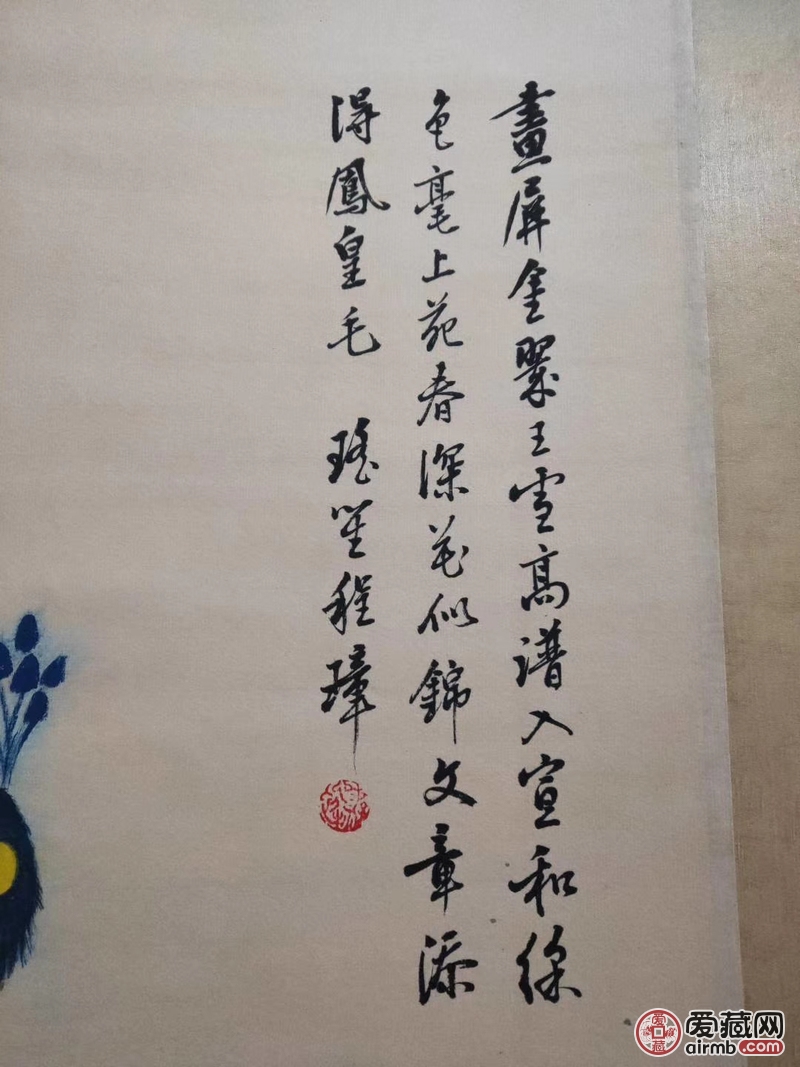 畫屏金翠五雲高譜入宣和綵
色毫上苑春深花似錦文章添
得鳳皇毛 瑤笙程璋
爱藏网
airmb.com